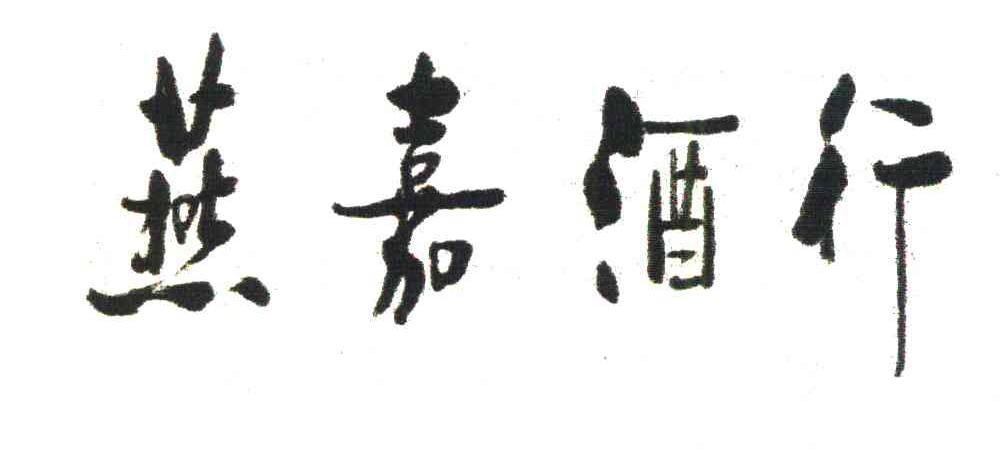 燕嘉酒行